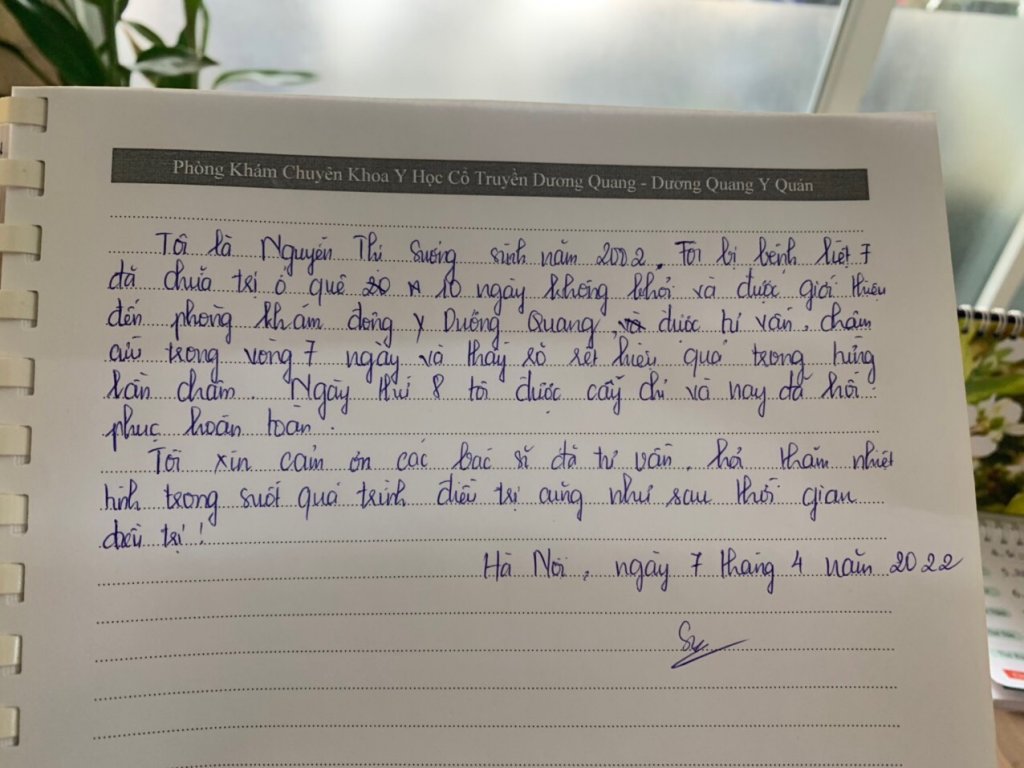 Phòng Khám Chuyên Khoa Y Học Cổ Truyền Dương Quang - Dương Quang Y Quán
Tôi là Nguyễn Thị Sương sinh năm 2002. Tôi bị bệnh liệt 7
đã chữa trị ở quê 10 ngày không khỏi và được giới thiệu
đến phòng khám đông y Dương Quang, được tư vấn, châm
cứu trong vòng 7 ngày và thấy rõ rệt hiệu quả trong từng
lần châm. Ngày thứ 8 tôi được cấy chỉ và nay đã hồi
phục hoàn toàn.
Tôi xin cảm ơn các bác sĩ đã tư vấn, hỏi thăm nhiệt
tình trong suốt quá trình điều trị cũng như sau thời gian
điều trị!
Hà Nội, ngày 7 tháng 4 năm 2022